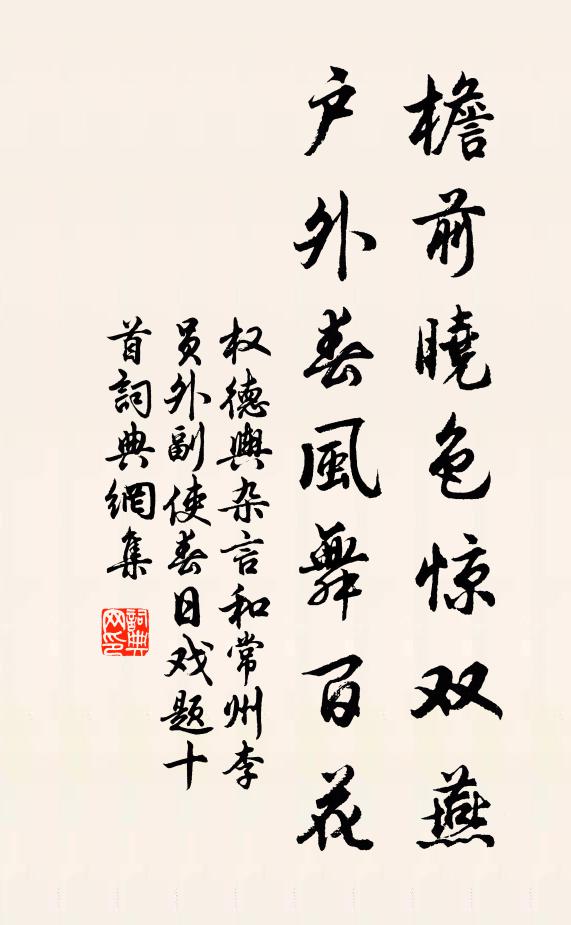 檐前曉色惊双燕
户外春風舞百花
权德輿杂言和常州李
员外副使春日戏题十
首詞典網集
詞典网印